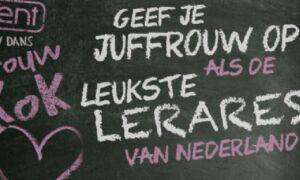 ent
DANS
ROUW
KOK
GEEF JE
JUFFROUW OP
ALS DE
LEUKSTE
LERARES
VAN NEDERLAND